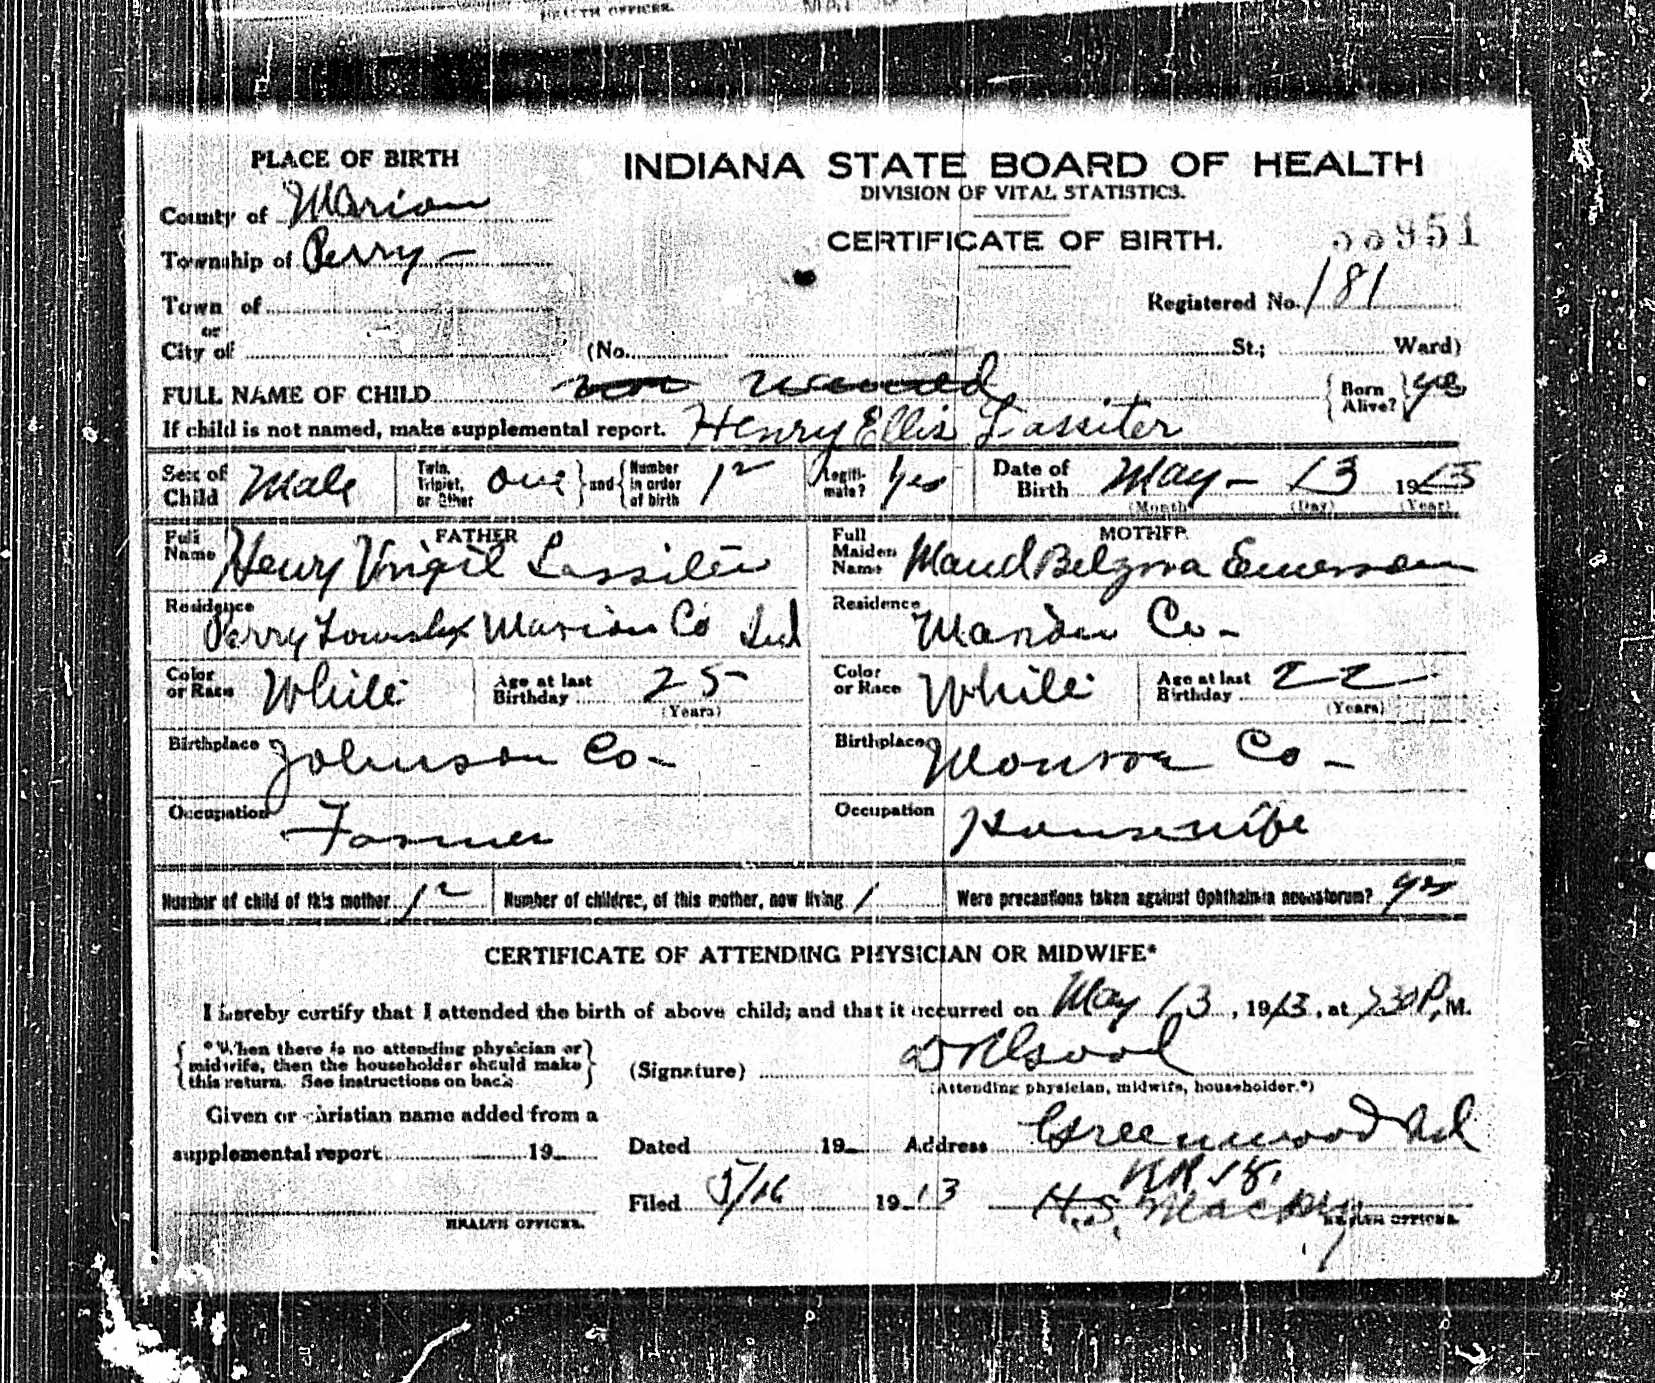 HEALTH OFFICER.
PLACE OF BIRTH
INDIANA STATE BOARD OF HEALTH
DIVISION OF VITAL STATISTICS.
County of Marion
CERTIFICATE OF BIRTH. 951
Township of Perry
Town of
Registered No. 181
or
City of (No. St.; Ward)
FULL NAME OF CHILD not named Born Alive? yes
If child is not named, make supplemental report. Henry Ellis Lassiter
Sex of Child Male Twin, Triplet, or Other one and Number in order of birth 1st Legitimate? Yes Date of Birth May - 13 1913
(Month) (Day) (Year)
FATHER MOTHER
Full Name Henry Virgil Lassiter Full Maiden Name Maud Emerson
Residence Perry Township Marion Co Ind Residence Marion Co -
Color or Race White Age at last Birthday 25 (Years) Color or Race White Age at last Birthday 22 (Years)
Birthplace Johnson Co - Birthplace Monroe Co -
Occupation Farmer Occupation Housewife
Number of child of this mother 1st Number of children, of this mother, now living 1 Were precautions taken against Ophthalmia neonatorum? yes
CERTIFICATE OF ATTENDING PHYSICIAN OR MIDWIFE*
I hereby certify that I attended the birth of above child; and that it occurred on May 13, 1913, at 730 P. M.
*When there is no attending physician or
midwife, then the householder should make
this return. See instructions on back
(Signature)
(Attending physician, midwife, householder.*)
Given or christian name added from a
supplemental report 19 Dated 19 Address Greenwood Ind
Filed 5/16 1913 H.S. Mackey
HEALTH OFFICER. HEALTH OFFICER.